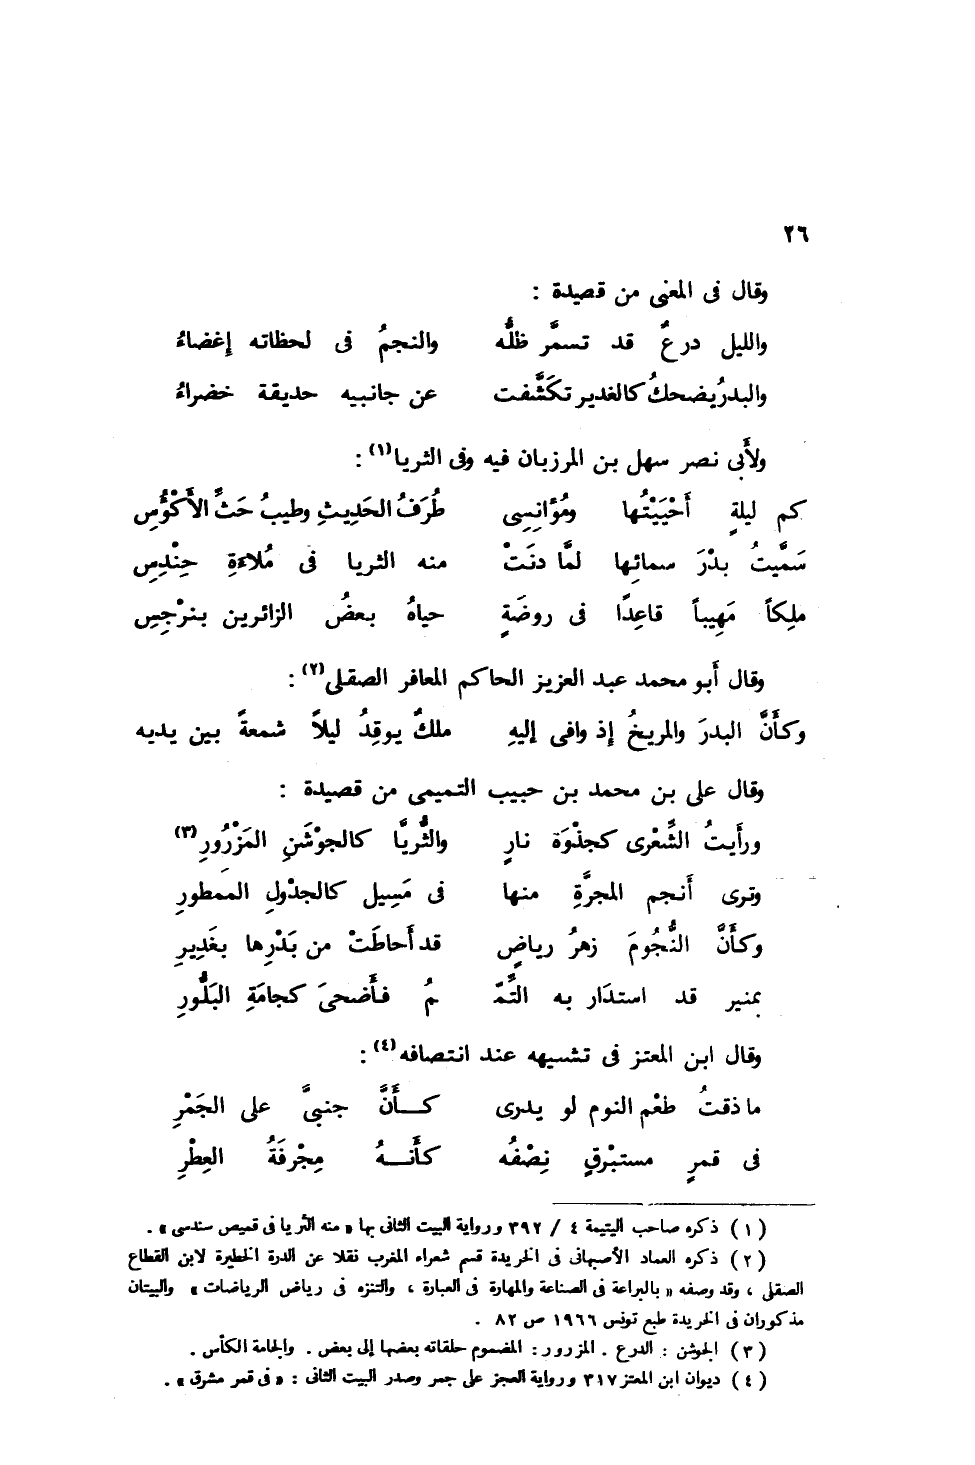 ٢٦
وقال فى المعنى من قصيدة :
والليل درعٌ قد تسمَّر ظلُّه والنجمُ فى لحظاته إغضاءُ
والبدرُ يضحكُ كالغدير تكَشَّفت عن جانبيه حديقة خضراءُ
ولأبى نصر سهل بن المرزبان فيه وفى الثريا(١) :
كم ليلةٍ أَحْيَيْتُها ومُؤَانِسِى طُرَفُ الحَدِيثِ وطيبُ حَثِّ الأَكْؤُسِ
سَمَّيتُ بدْرَ سمائِها لمَّا دنَتْ منه الثريا فى مُلاءَةِ حِنْدِسِ
ملِكاً مَهِيباً قاعِدًا فى روضَةٍ حياهُ بعضُ الزائرين بنرْجِسِ
وقال أَبو محمد عبد العزيز الحاكم المعافر الصقلى(٢) :
وكأَنَّ البدرَ والمريخُ إذ وافى إليهِ ملكٌ يوقِدُ ليلاً شمعةً بين يديه
وقال على بن محمد بن حبيب التميمى من قصيدة :
ورأَيتُ الشِّعْرى كجذْوَة نارٍ والثُّريَّا كالجوْشَنِ المَزْرُورِ(٣)
وترى أَنجم المجرَّةِ منها فى مَسِيل كالجدْولِ الممطورِ
وكأَنَّ النُّجُومَ زهرُ رياضٍ قد أَحاطَتْ من بَدْرِها بغَدِيرِ
بمنير قد استدَار به التَّمّ مُ فأَضحىَ كجامَةِ البَلُّورِ
وقال ابن المعتز فى تشسيهه عند انتصافه(٤) :
ما ذقتُ طعْم النوم لو يدرى كـــأَنَّ جنبىَّ على الجَمْرِ
فى قمرٍ مستبْرقٍ نِصْفُه كأَنـــهُ مِجْرفَةُ العِطْرِ
(١) ذكره صاحب اليتيمة ٤ / ٣٩٢ ورواية البيت الثانى بها « منه الثريا فى قميص سندسى » .
(٢) ذكره العماد الأصبهانى فى الخريدة قسم شعراء المغرب نقلا عن الدرة الخطيرة لابن القطاع
الصقلى ، وقد وصفه « بالبراعة فى الصناعة والمهارة فى العبارة ، والتنزه فى رياض الرياضات » والبيتان
مذكوران فى الخريدة طبع تونس ١٩٦٦ ص ٨٢ .
(٣) الجوشن : الدرع . المزرور : المضموم حلقاته بعضها إلى بعض . والجامة الكأس .
(٤) ديوان ابن المعتز ٣١٧ ورواية العجز على جمر وصدر البيت الثانى : « فى قمر مشرق » .